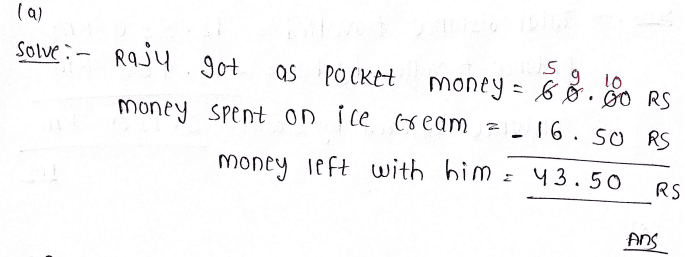 (a)
Solve:- Raju got as pocket money = 60.00 RS
5 9 10
money spent on ice cream = - 16.50 RS
money left with him = 43.50 RS
Ans